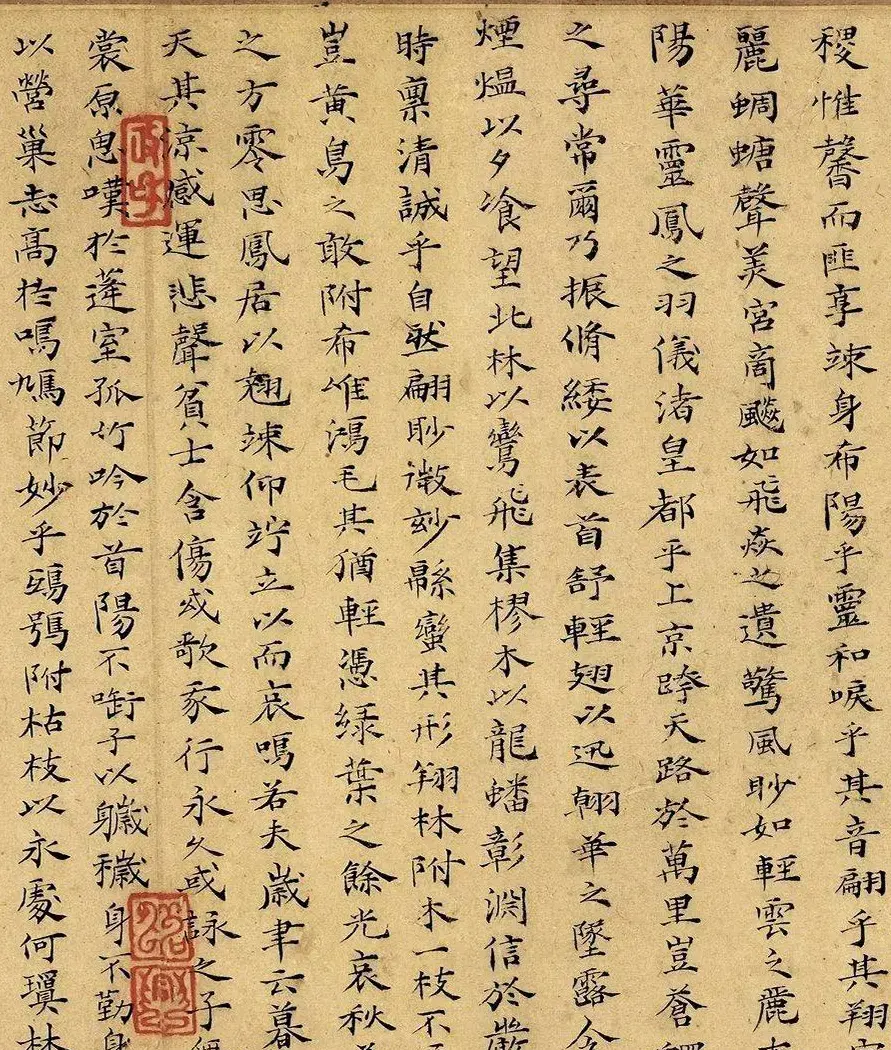 稷惟馨而匪享竦身希陽乎靈和唳乎其音翩乎其翔
麗蜩螗聲美宮商飈如飛焱之遺驚風眇如輕雲之麗
陽華靈鳳之羽儀渚皇都乎上京跨天路於萬里豈蒼
之尋常爾乃振脩緌以表首舒輕翅以迅翰華之墜露
煙熅以夕飡望北林以鸞飛集樛木以龍蟠彰淵信於嚴
時稟清誠乎自然翩眇微妙緜蠻其形翔林附木一枝不
豈黃鳥之敢附希唯鴻毛其猶輕憑綠葉之餘光哀秋
之方零思鳳居以翹竦仰竚立以而哀鳴若夫歲聿云暮
天其涼感運悲聲貧士含傷或歌我行永久或詠之子
裳原思嘆於蓬室孤竹吟於首陽不銜子以穢身不勤身
以營巢志高於鳴鳩節妙乎鴟鴞附枯枝以永處何瓊林